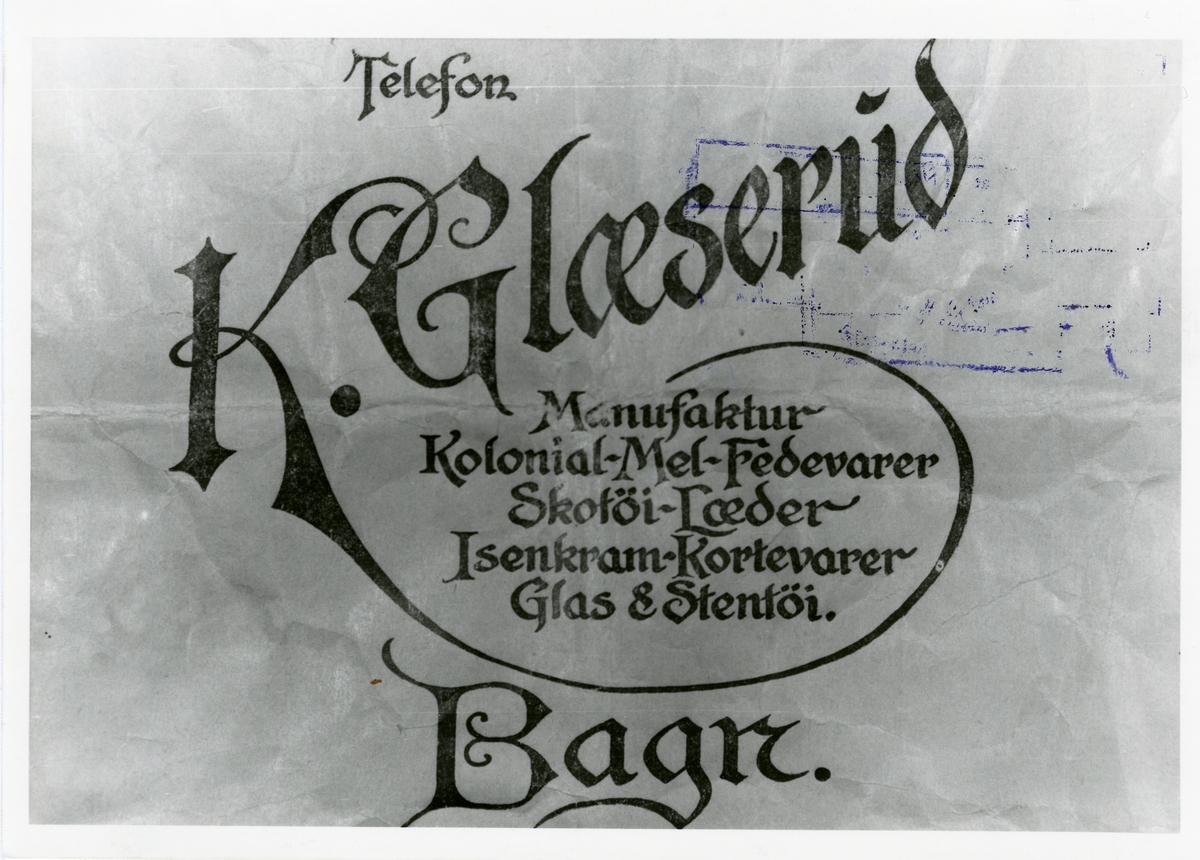 Telefon
K. Glæserud
Manufaktur
Kolonial-Mel-Fedevarer
Skotöi-Læder
Isenkram-Kortevarer
Glas & Stentöi.
Bagn.